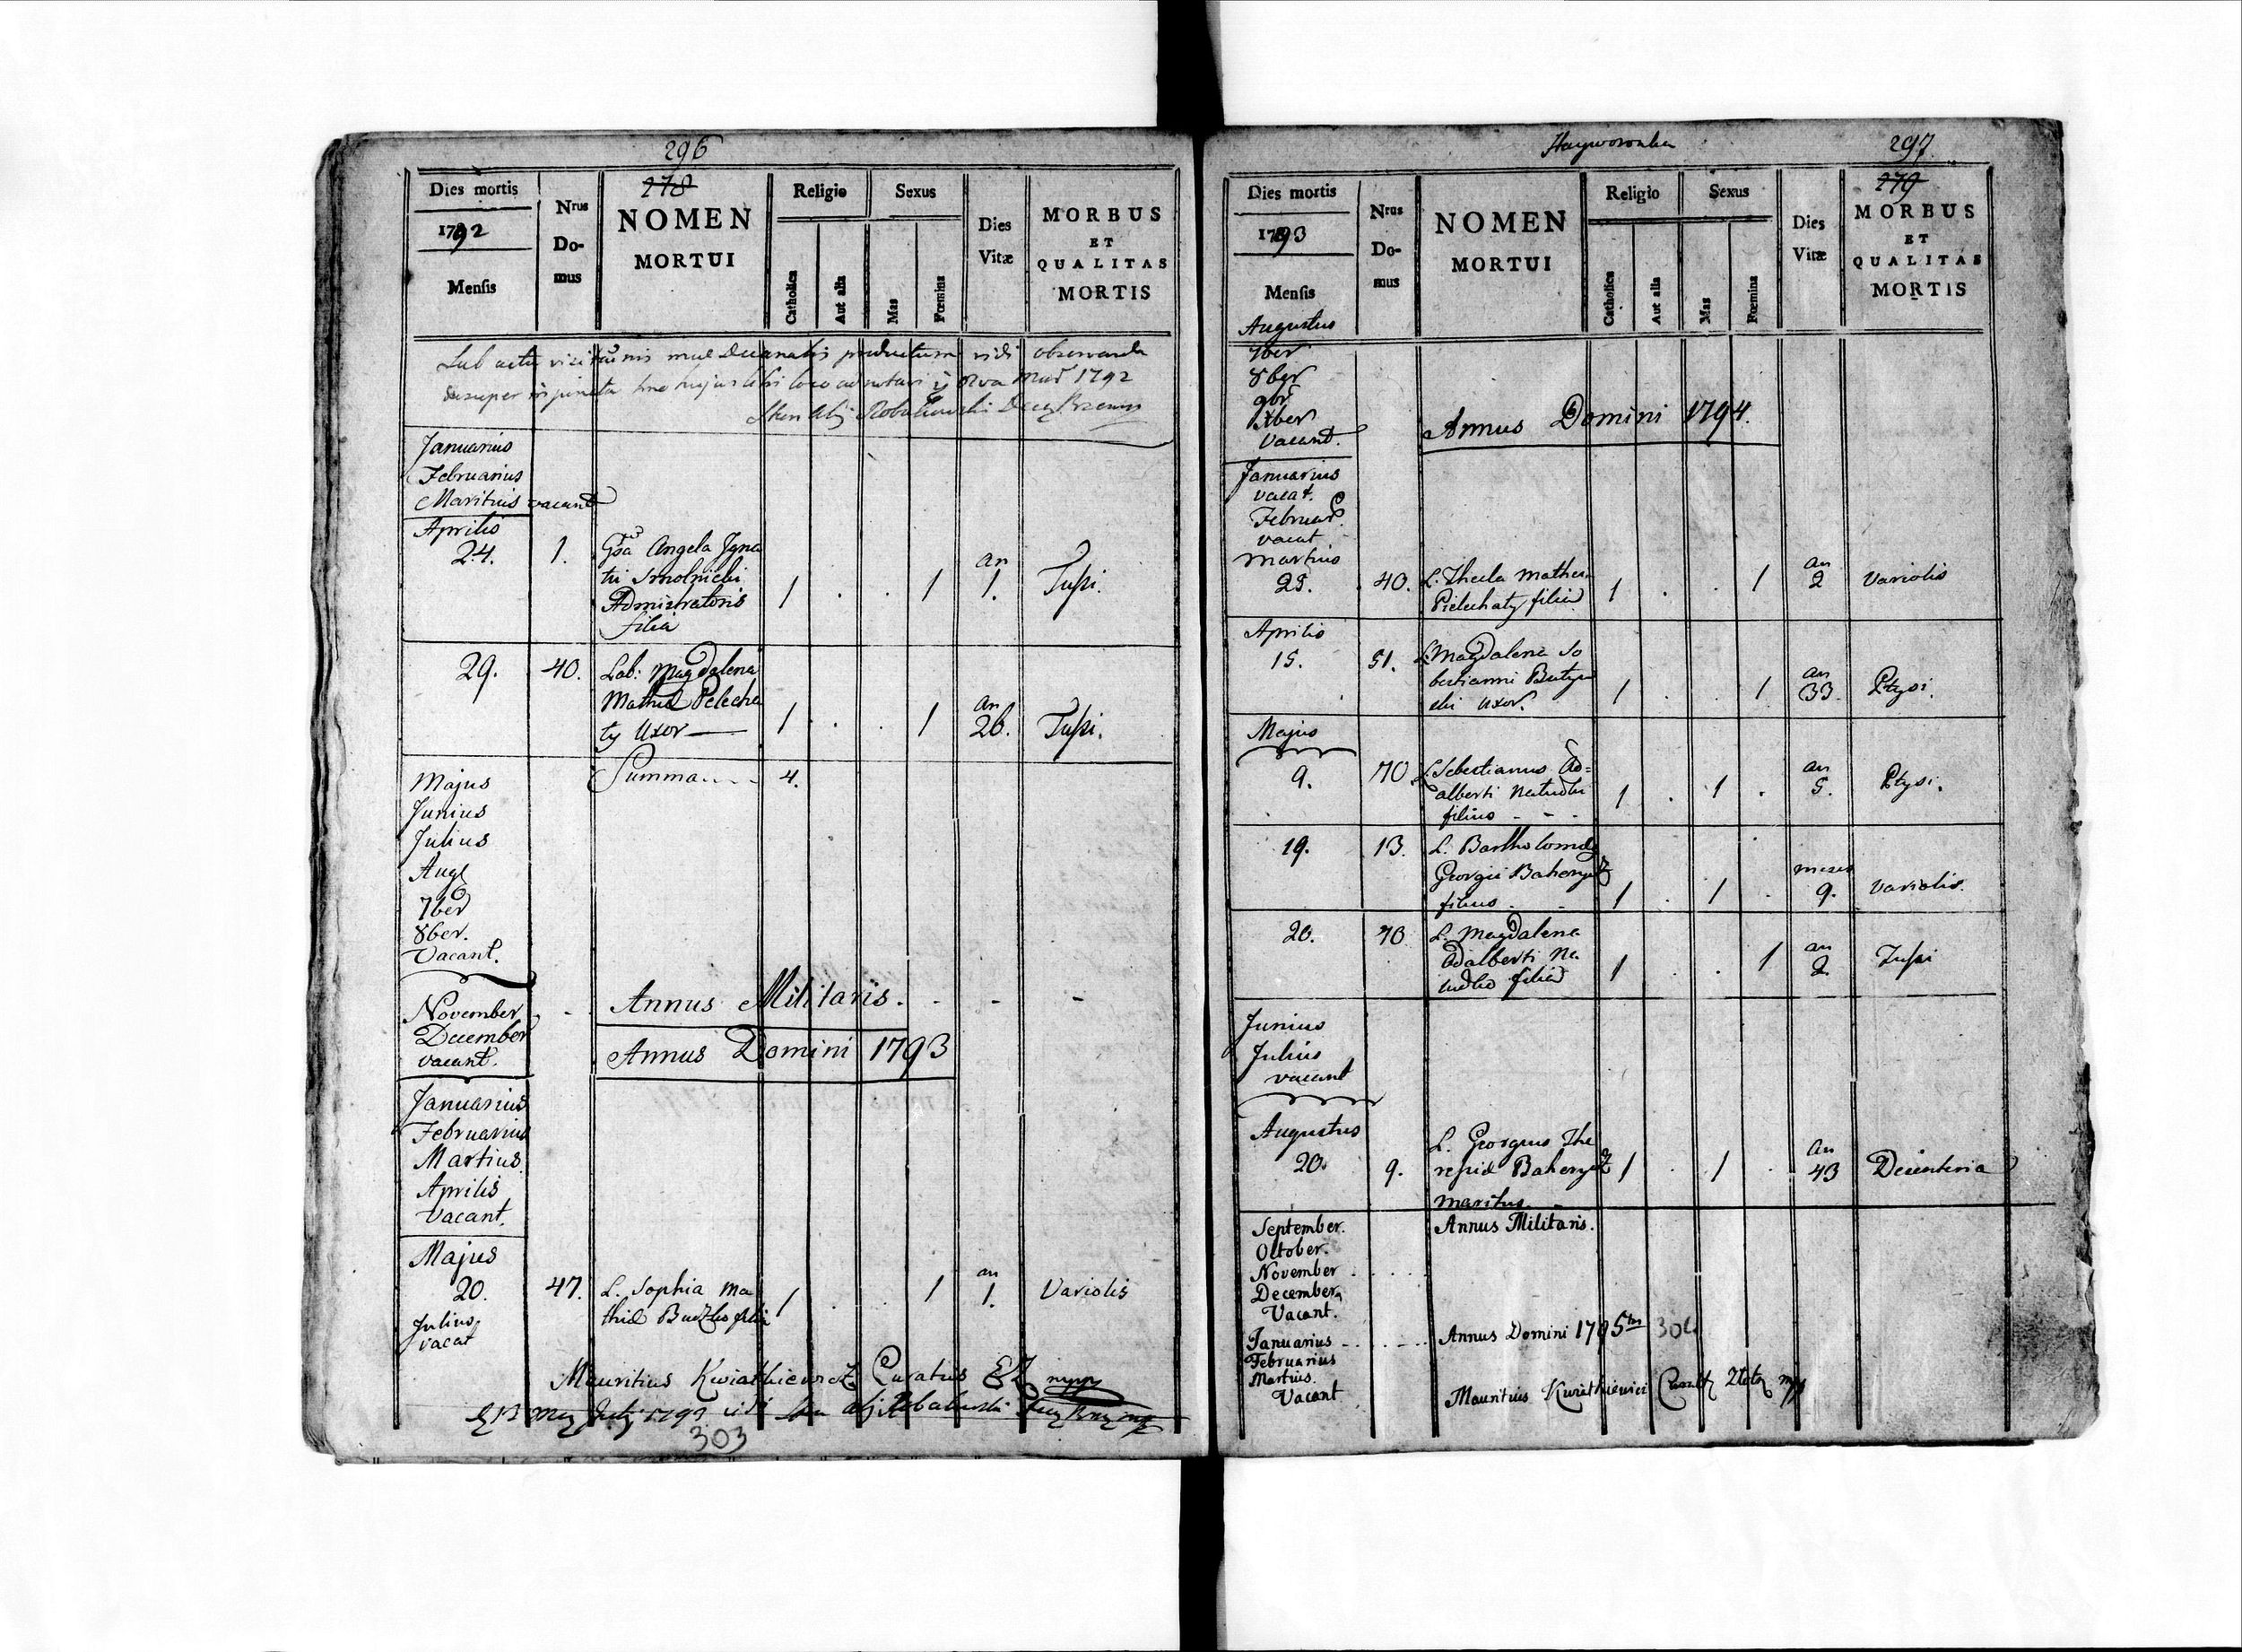 296
278
Dies mortis
1792
Mensis
Nrus
Do-
mus
NOMEN
MORTUI
Religio
Catholica
Aut alia
Sexus
Mas
Fœmina
Dies
Vitæ
MORBUS
ET
QUALITAS
MORTIS
Sub actu visitãnis meæ Decanalis productum vidi observanda
desuper hujus libri loco adnotavi 1792
Januarius
Februarius
Martius vacant
Aprilis
24. 1. Gsa Angela Igna
tii Smolnicki
Administratoris 1 . . 1 an 1. Tussi.
filia
29. 40. Lab: Magdalena
Mathiæ Pelecha
ty Uxor 1 . . 1 an 26. Tussi.
Summa.... 4.
Majus
Junius
Julius
Aug
7ber
8ber.
Vacant.
Annus Militaris. - - -
November
December
vacant.
Annus Domini 1793
Januarius
Februarius
Martius
Aprilis
Vacant.
Majus
20. 47. L. Sophia Ma 1 . . 1 an 1. Variolis
thiæ Budzko filia
Julius
vacat
Mauritius Kwiatkiewicz Curatus EZ mpp
303
Hayworonka
297
279
Dies mortis
1793
Mensis
Nrus
Do-
mus
NOMEN
MORTUI
Religio
Catholica
Aut alia
Sexus
Mas
Fœmina
Dies
Vitæ
MORBUS
ET
QUALITAS
MORTIS
Augustus
7ber
8ber
9br
Xber
Vacant.
Annus Domini 1794.
Januarius
vacat.
Februar.
vacat
Martius
25. 40. L. Thecla Mathei 1 . . 1 an 2 Variolis
Pielechaty filia
Aprilis
15. 51. L. Magdalena Se
bestianni
ski uxor. 1 . . 1 an 33. Ptysi.
Majus
9. 70 L. Sebestianus Ad=
alberti Natudka 1 . 1 . an 5. Ptysi.
filius - - -
19. 13. L. Bartholomeus
Georgii Baherycz
filius - - 1 . 1 . meses 9. Variolis.
20. 70 L. Magdalena
Adalberti Na
tudko filia 1 . . 1 an 2. Tussi
Junius
Julius
vacant
Augustus
20. 9. L. Georgius The
resiæ Baherycz 1 . 1 . an 43 Decenteria
maritus.
September.
October.
November
December
Vacant.
Annus Militaris.
Januarius
Februarius
Martius.
Vacant
Annus Domini 1795
304
Mauritius Kwiatkiewicz